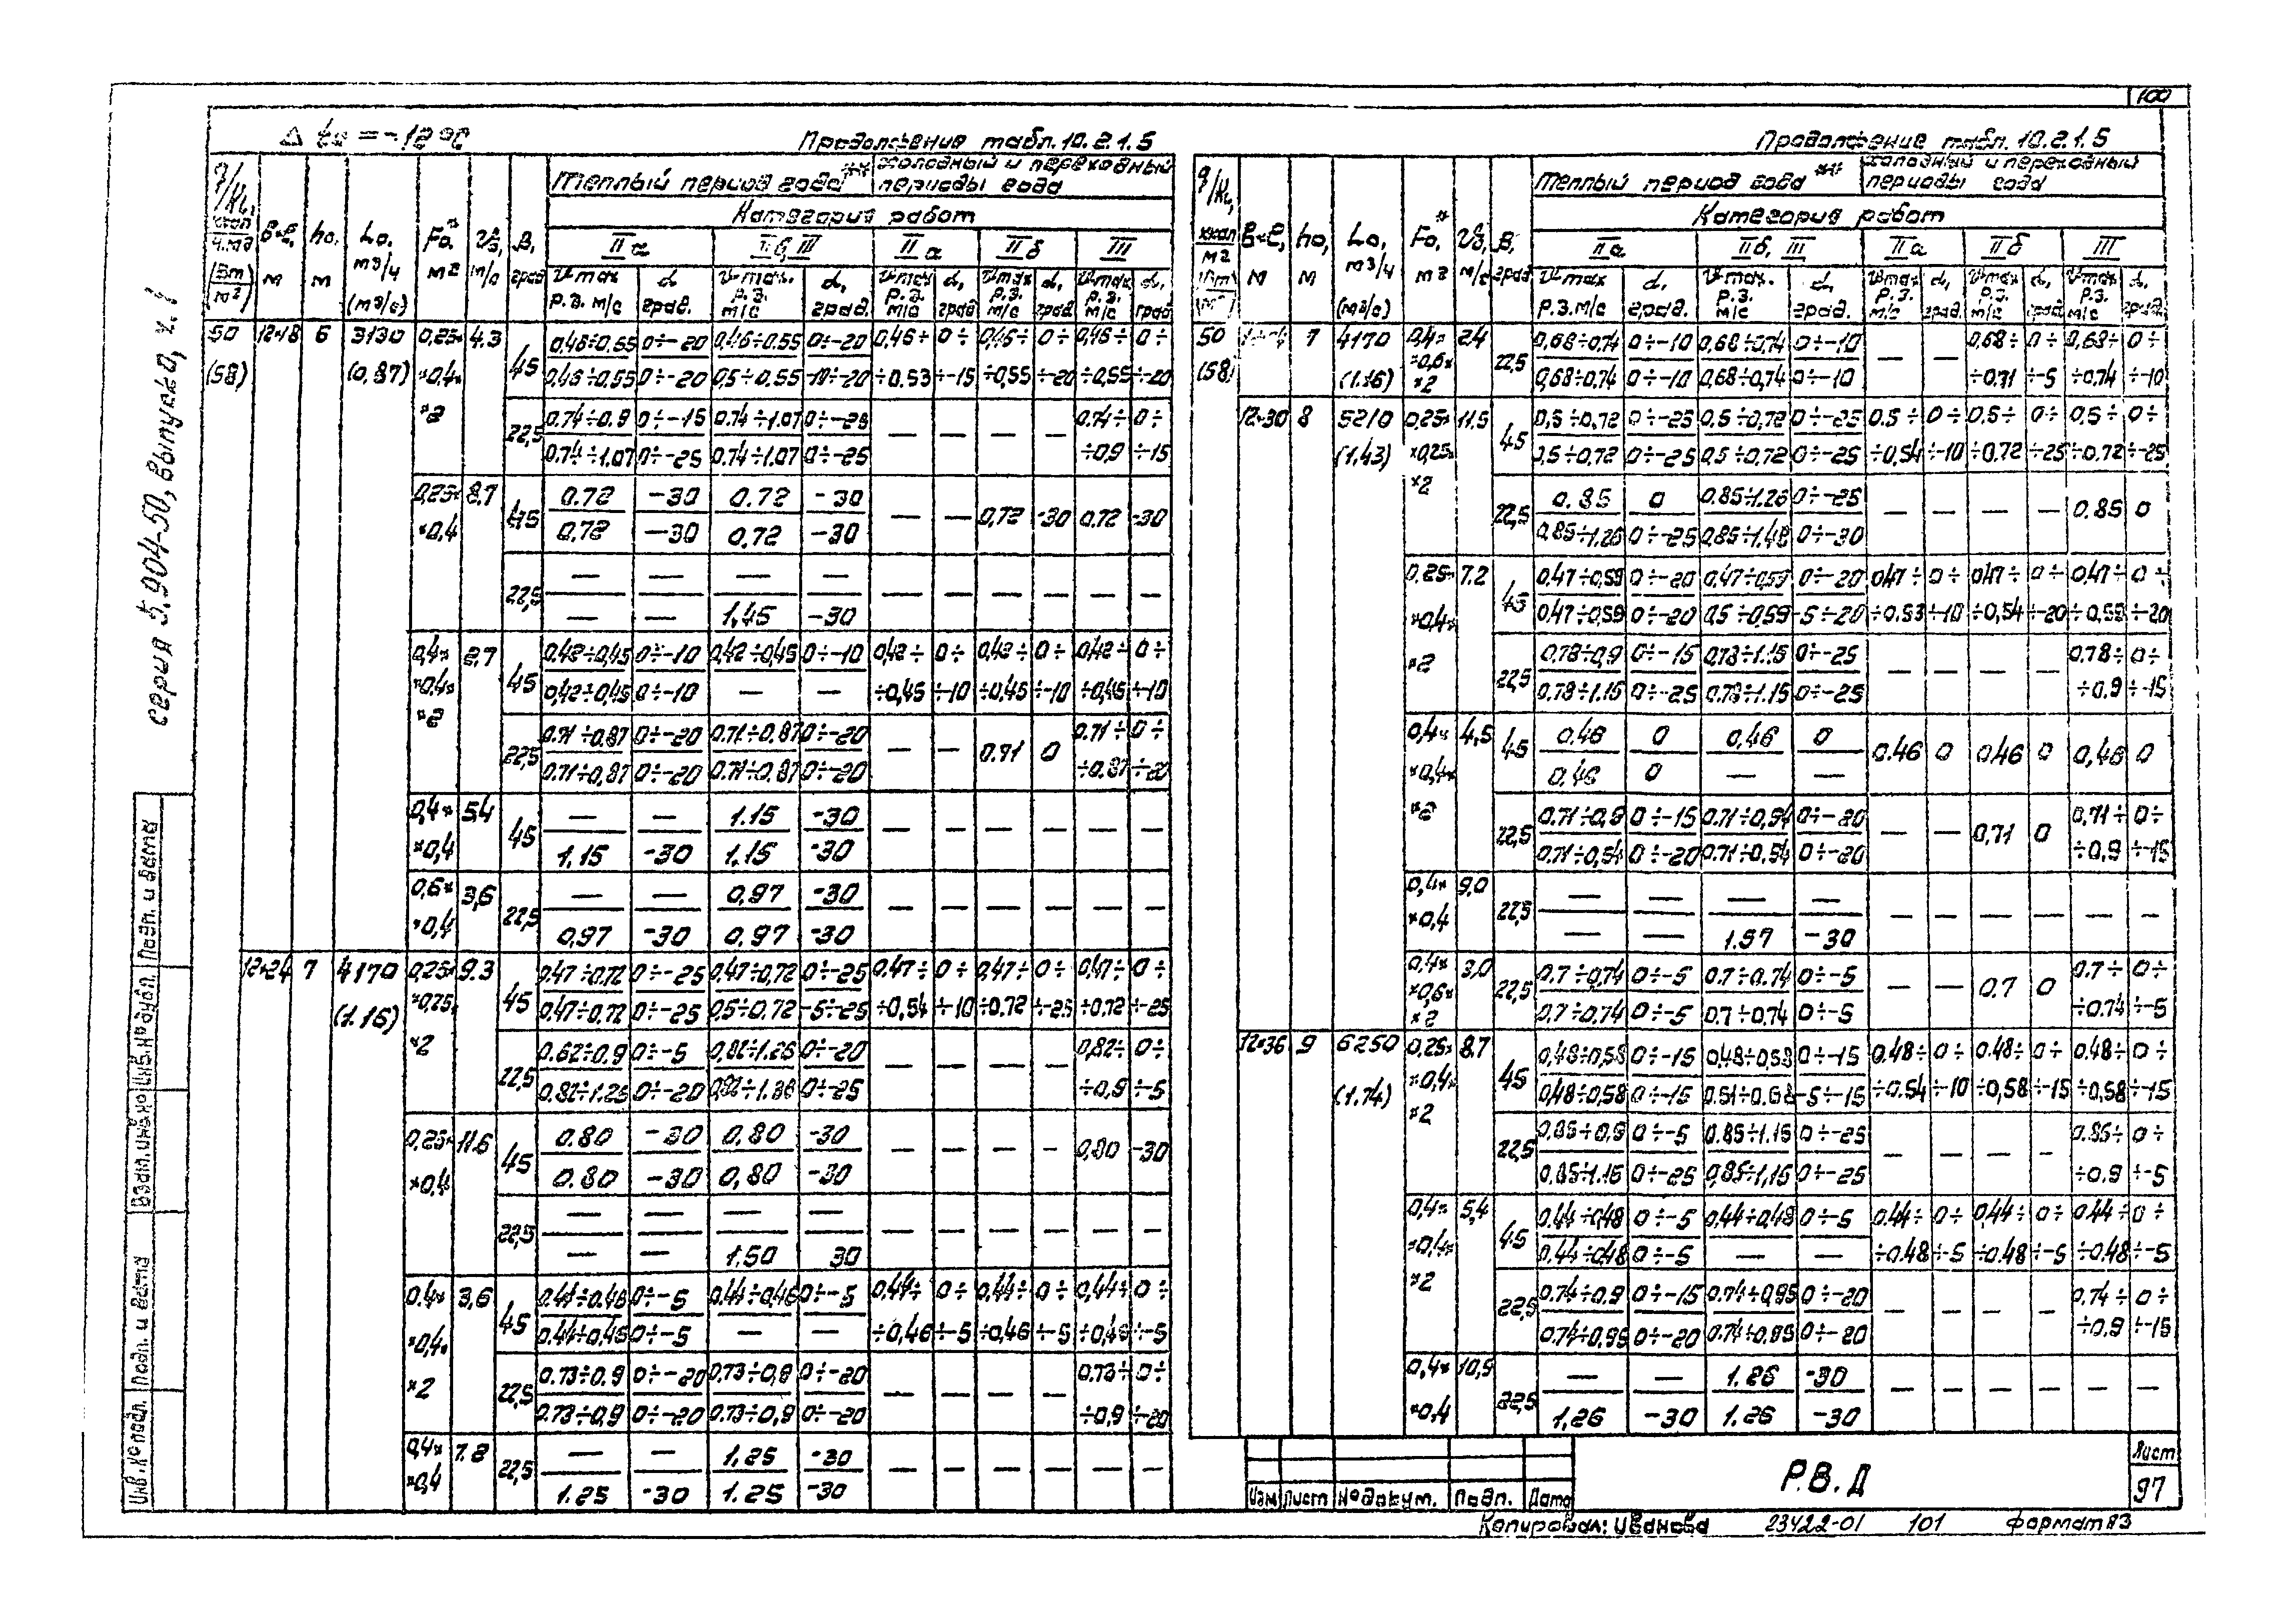 100
Δ t₀ = -12 °C
Продолжение табл. 10.2.1.5
q/KL, ккал/ч.м2 (Вт/м²) | B×L, м | ho, м | Lo, м³/ч (м³/с) | Fo*, м² | V0, м/с | β, град | Теплый период года** | холодный и переходный периоды года
Категория работ
IIа | IIб, III | IIа | IIб | III
Vmax р.з. м/с | α, град. | Vmax. р.з. м/с | α, град. | Vmax р.з. м/с | α, град | Vmax р.з. м/с | α, град | Vmax р.з. м/с | α, град
50 (58) | 12×18 | 6 | 3130 (0,87) | 0,25× ×0,4× ×2 | 4.3 | 45 | 0,46÷0,55 0÷-20 0,46÷0,55 0÷-20 0,46÷ 0÷ 0,46÷ 0÷ 0,46÷ 0÷
0,46÷0,55 0÷-20 0,5÷0.55 -10÷-20 ÷0.53 ÷-15 ÷0,55 ÷-20 ÷0,55 ÷-20
22,5 | 0.74÷0.9 0÷-15 0.74÷1.07 0÷-25 — — — — 0.74÷ 0÷
0.74÷1.07 0÷-25 0.74÷1.07 0÷-25 ÷0,9 ÷-15
0,25× ×0,4 | 8.7 | 45 | 0.72 -30 0.72 -30 — — 0,72 -30 0.72 -30
0.72 -30 0.72 -30
22,5 | — — — — — — — — — —
— — 1,45 -30
0,4× ×0,4× ×2 | 2.7 | 45 | 0,42÷0,45 0÷-10 0,42÷0,45 0÷-10 0,42÷ 0÷ 0,42÷ 0÷ 0,42÷ 0÷
0,42÷0,45 0÷-10 — — ÷0,45 ÷-10 ÷0,45 ÷-10 ÷0,45 ÷-10
22,5 | 0.71÷0,87 0÷-20 0.71÷0,87 0÷-20 — — 0.71 0 0.71÷ 0÷
0.71÷0,87 0÷-20 0.71÷0,87 0÷-20 ÷0.87 ÷-20
0,4× ×0,4 | 5,4 | 45 | — — 1.15 -30 — — — — — —
1.15 -30 1.15 -30
0,6× ×0,4 | 3,6 | 22,5 | — — 0,97 -30 — — — — — —
0,97 -30 0.97 -30
12×24 | 7 | 4170 (1.16) | 0,25× ×0,25× ×2 | 9.3 | 45 | 0,47÷0.72 0÷-25 0,47÷0,72 0÷-25 0,47÷ 0÷ 0,47÷ 0÷ 0,47÷ 0÷
0,47÷0,72 0÷-25 0,5÷0.72 -5÷-25 ÷0,54 ÷-10 ÷0.72 ÷-25 ÷0.72 ÷-25
22,5 | 0.82÷0.9 0÷-5 0,82÷1.25 0÷-20 — — — — 0,82÷ 0÷
0.82÷1.25 0÷-20 0,82÷1.36 0÷-25 ÷0,9 ÷-5
0,25× ×0,4 | 11.6 | 45 | 0.80 -30 0,80 -30 — — — — 0,80 -30
0.80 -30 0,80 -30
22,5 | — — — — — — — — — —
— — 1.50 30
0.4× ×0,4× ×2 | 3,6 | 45 | 0.44÷0.46 0÷-5 0.44÷0,46 0÷-5 0,44÷ 0÷ 0,44÷ 0÷ 0,44÷ 0÷
0.44÷0,46 0÷-5 — — ÷0,46 ÷-5 ÷0,46 ÷-5 ÷0,46 ÷-5
22,5 | 0.73÷0.9 0÷-20 0,73÷0,9 0÷-20 — — — — 0.73÷ 0÷
0.73÷0,9 0÷-20 0.73÷0,9 0÷-20 ÷0,9 ÷-20
0,4× ×0,4 | 7.2 | 22,5 | — — 1,25 -30 — — — — — —
1.25 -30 1.25 -30
Продолжение табл. 10.2.1.5
q/KL, ккал/м2 (Вт/м²) | B×L, м | ho, м | Lo, м³/ч (м³/с) | Fo*, м² | V0, м/с | β, град | Теплый период года** | холодный и переходный периоды года
Категория работ
IIа | IIб, III | IIа | IIб | III
Vmax р.з. м/с | α, град. | Vmax. р.з. м/с | α, град. | Vmax р.з. м/с | α, град. | Vmax р.з. м/с | α, град | Vmax р.з. м/с | α, град.
50 (58) | 7 | 4170 (1.16) | 0,4× ×0,6× ×2 | 2.4 | 22,5 | 0,68÷0,74 0÷-10 0,68÷0,74 0÷-10 — — 0,68÷ 0÷ 0,68÷ 0÷
0,68÷0.74 0÷-10 0,68÷0,74 0÷-10 ÷0.71 ÷-5 ÷0.74 ÷-10
12×30 | 8 | 5210 (1.43) | 0,25× ×0,25× ×2 | 11.5 | 45 | 0,5÷0,72 0÷-25 0.5÷0,72 0÷-25 0.5÷ 0÷ 0,5÷ 0÷ 0,5÷ 0÷
0,5÷0.72 0÷-25 0,5÷0.72 0÷-25 ÷0,54 ÷-10 ÷0.72 ÷-25 ÷0.72 ÷-25
22,5 | 0.85 0 0.85÷1.26 0÷-25 — — — — 0.85 0
0,85÷1.26 0÷-25 0,85÷1.48 0÷-30
0,25× ×0,4× ×2 | 7.2 | 45 | 0.47÷0,59 0÷-20 0,47÷0,59 0÷-20 0,47÷ 0÷ 0,47÷ 0÷ 0,47÷ 0÷
0,47÷0,59 0÷-20 0,5÷0,59 -5÷-20 ÷0.53 ÷-10 ÷0,54 ÷-20 ÷0,59 ÷-20
22,5 | 0.78÷0,9 0÷-15 0.78÷1.15 0÷-25 — — — — 0.78÷ 0÷
0.78÷1.15 0÷-25 0.78÷1.15 0÷-25 ÷0.9 ÷-15
0,4× ×0,4× ×2 | 4,5 | 45 | 0.46 0 0,46 0 0.46 0 0,46 0 0,46 0
0,46 0 — —
22,5 | 0.71÷0,9 0÷-15 0.71÷0,94 0÷-20 — — 0,71 0 0,71÷ 0÷
0.71÷0,94 0÷-20 0.71÷0.94 0÷-20 ÷0,9 ÷-15
0,4× ×0,4 | 9,0 | 22,5 | — — — — — — — — — —
— — 1.57 -30
0,4× ×0,6× ×2 | 3,0 | 22,5 | 0.7÷0,74 0÷-5 0.7÷0.74 0÷-5 — — 0.7 0 0.7÷ 0÷
0,7÷0.74 0÷-5 0.7÷0.74 0÷-5 ÷0.74 ÷-5
12×36 | 9 | 6250 (1.74) | 0,25× ×0,4× ×2 | 8.7 | 45 | 0,48÷0,58 0÷-15 0,48÷0,58 0÷-15 0.48÷ 0÷ 0.48÷ 0÷ 0.48÷ 0÷
0,48÷0,58 0÷-15 0.51÷0.58 -5÷-15 ÷0.54 ÷-10 ÷0,58 ÷-15 ÷0,58 ÷-15
22,5 | 0,85÷0,9 0÷-5 0.85÷1.15 0÷-25 — — — — 0.85÷ 0÷
0.85÷1.15 0÷-25 0,85÷1,15 0÷-25 ÷0.9 ÷-5
0,4× ×0,4× ×2 | 5,4 | 45 | 0.44÷0,48 0÷-5 0,44÷0,48 0÷-5 0.44÷ 0÷ 0,44÷ 0÷ 0.44÷ 0÷
0.44÷0,48 0÷-5 — — ÷0.48 ÷-5 ÷0.48 ÷-5 ÷0.48 ÷-5
22,5 | 0.74÷0.9 0÷-15 0.74÷0,95 0÷-20 — — — — 0.74÷ 0÷
0.74÷0,95 0÷-20 0.74÷0,95 0÷-20 ÷0.9 ÷-15
0,4× ×0,4 | 10,9 | 22,5 | — — 1.26 -30 — — — — — —
1,26 -30 1.26 -30
серия 5.904-50, выпуск 0, ч. 1
Инв.№ подл. | Подп. и дата | Взам.инв.№ | Инв.№ дубл. | Подп. и дата
Изм | Лист | № докум. | Подп. | Дата
Р.В.Д
Лист
97
Копировал: Иванова 23422-01 101 формат А3